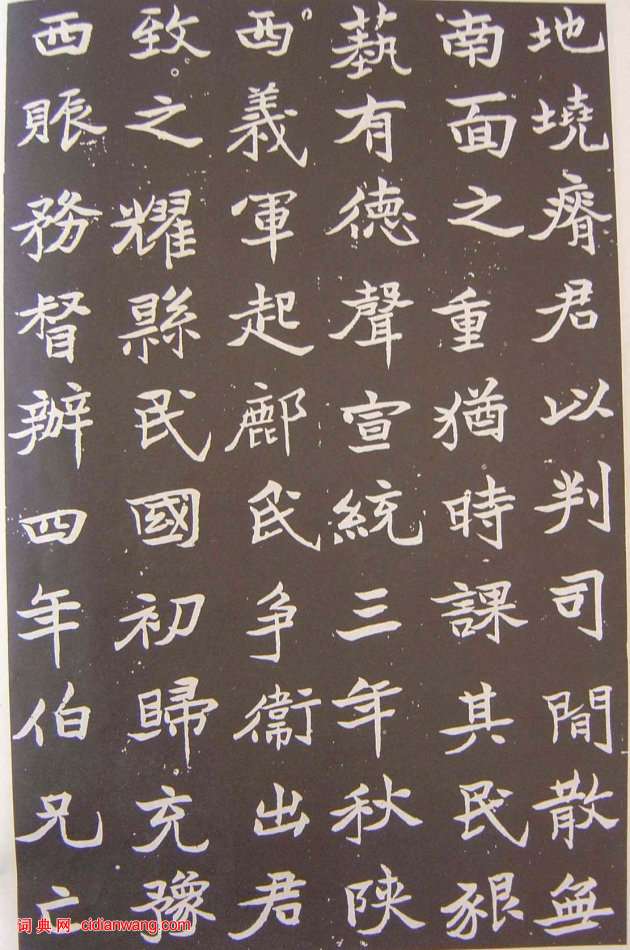 地墝瘠君以判司閒散無
南面之重猶時課其民貇
藝有德聲宣統三年秋陝
西義軍起鄜民爭衛出君
致之耀縣民國初歸充豫
西賑務督辦四年伯兄亡
词典网：cidianwang.com